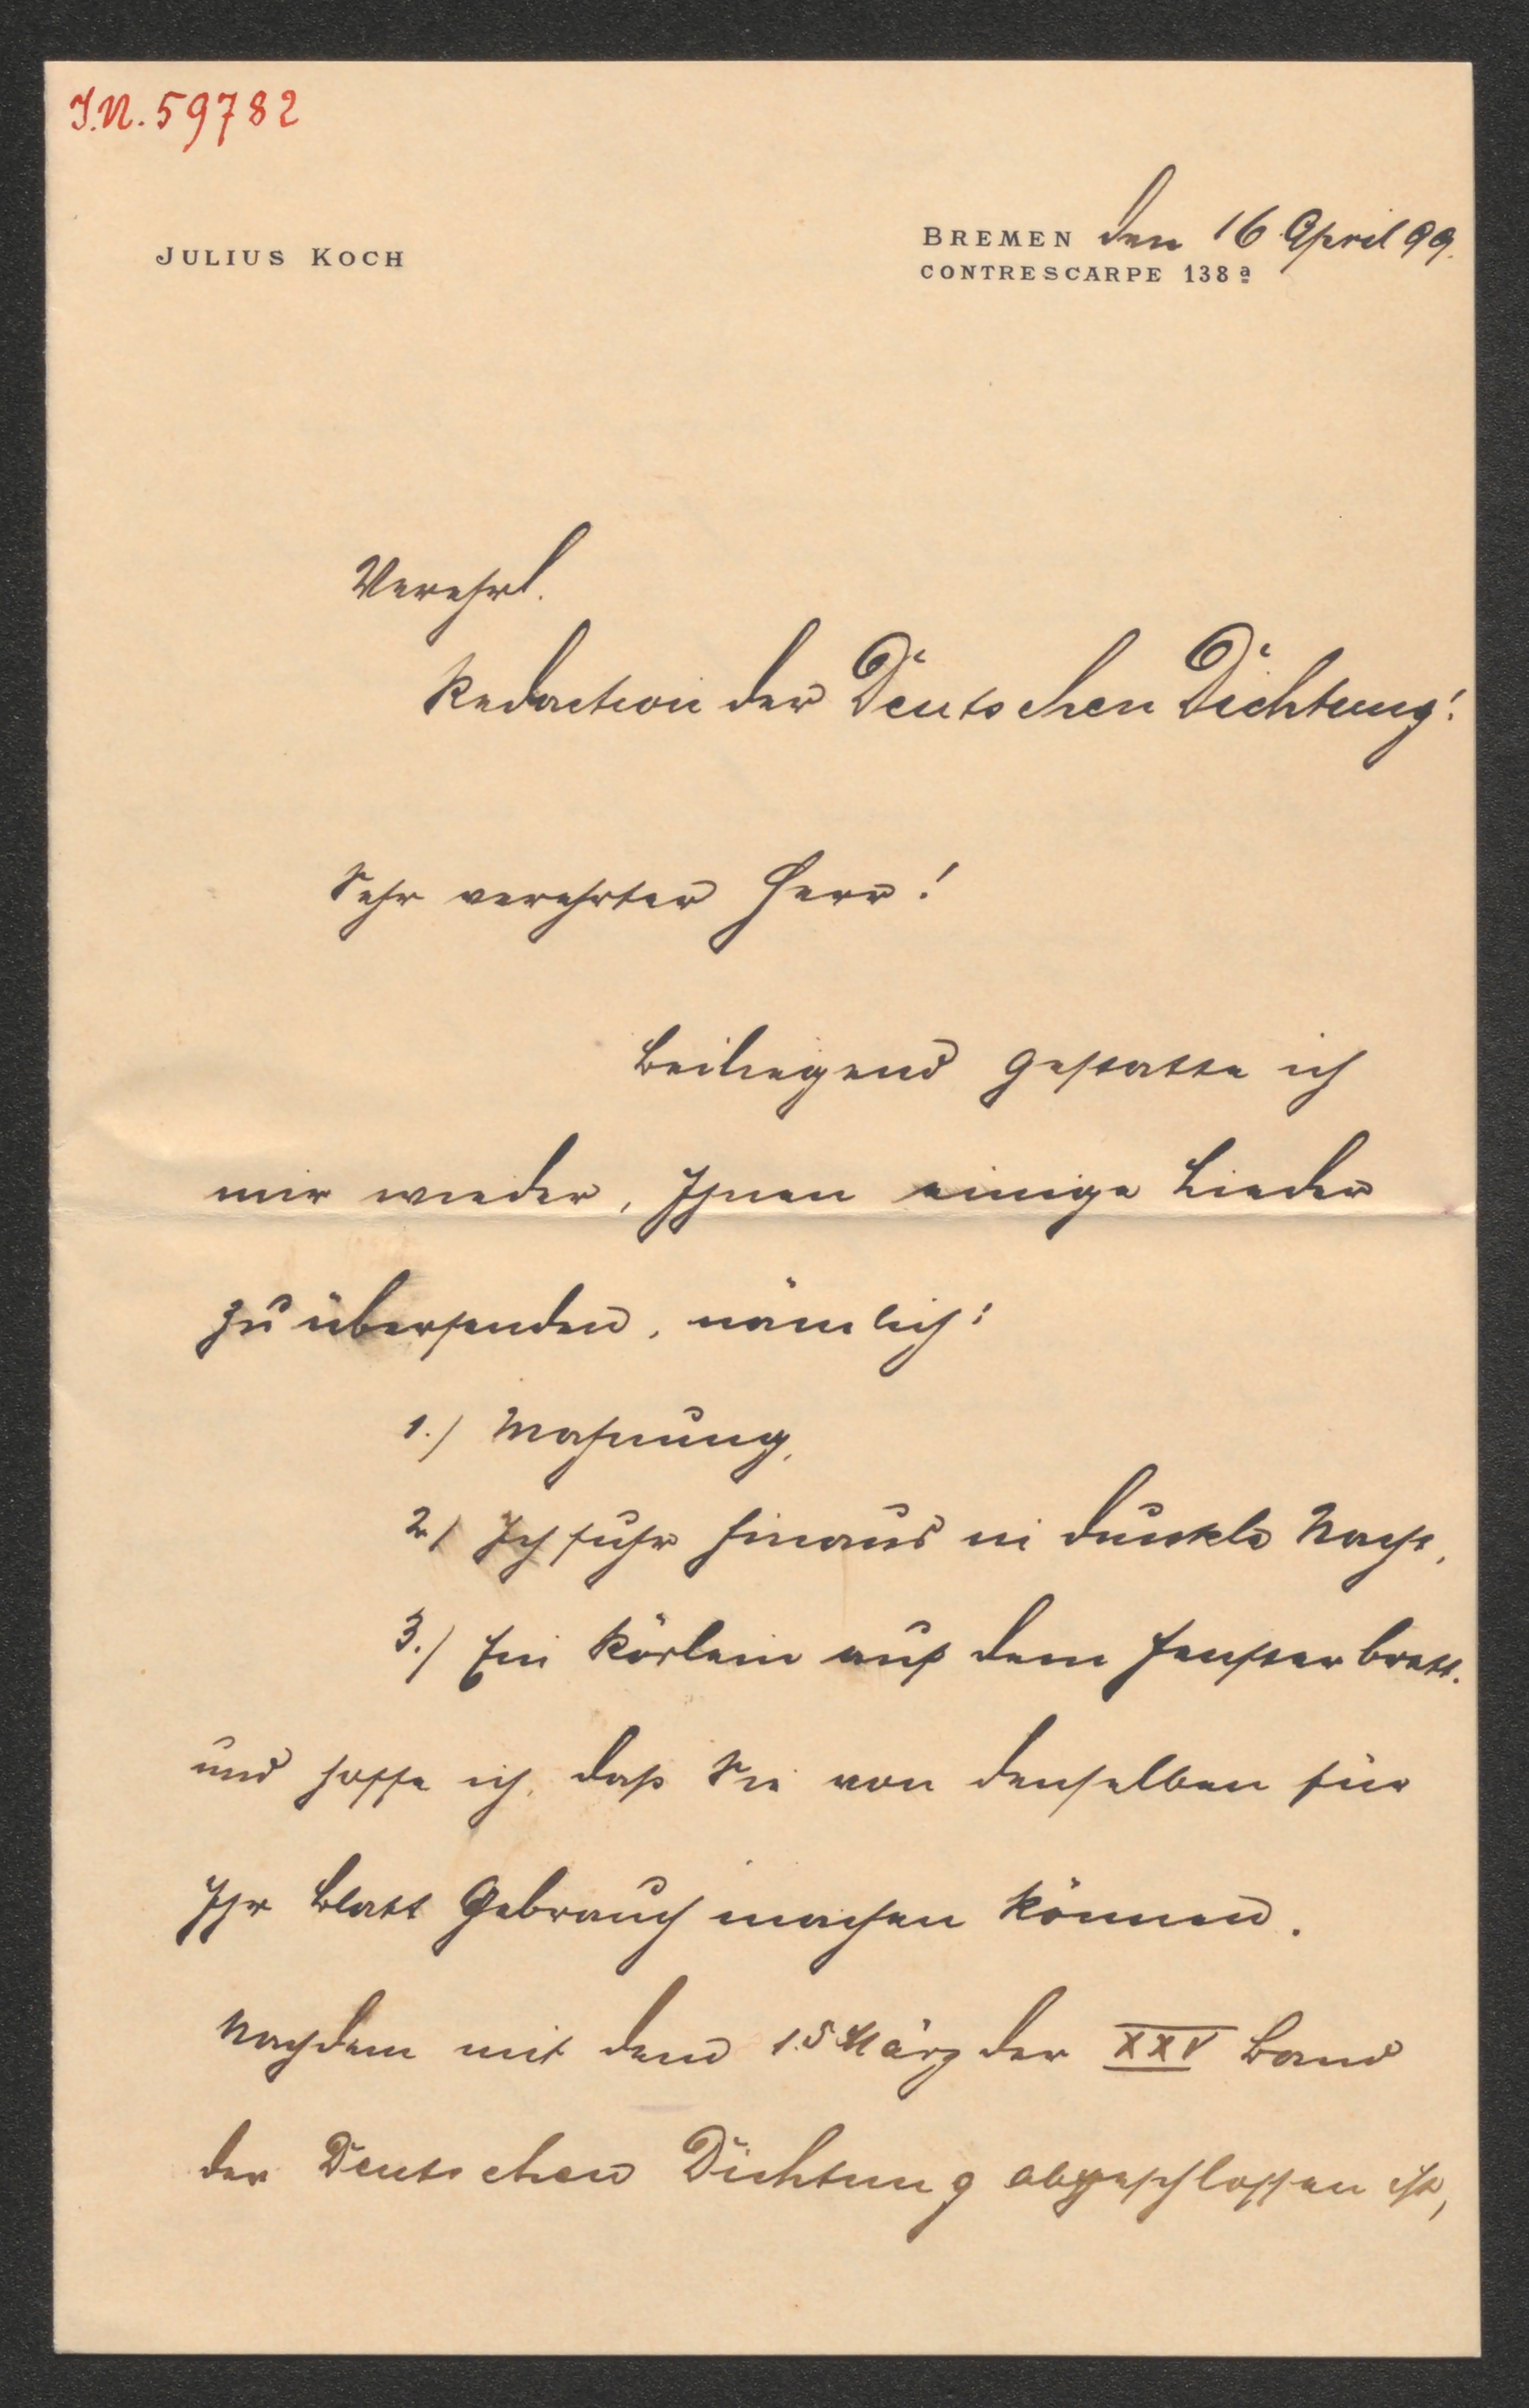 J.N. 59782
JULIUS KOCH
BREMEN den 16 April 99.
CONTRESCARPE 138 a
Verehrl.
Redaction der Deutschen Dichtung!
Sehr verehrter Herr!
Beiliegend gestatte ich
mir wieder, Ihnen einige Lieder
zu übersenden, nämlich:
1.) Mahnung,
2.) Ich fuhr hinaus in dunkle Nacht,
3.) Ein auf dem Fensterbrett.
und hoffe ich, daß Sie von denselben für
Ihr Blatt Gebrauch machen können.
Nachdem mit dem 15 März der XXV Band
der Deutschen Dichtung abgeschlossen ist,